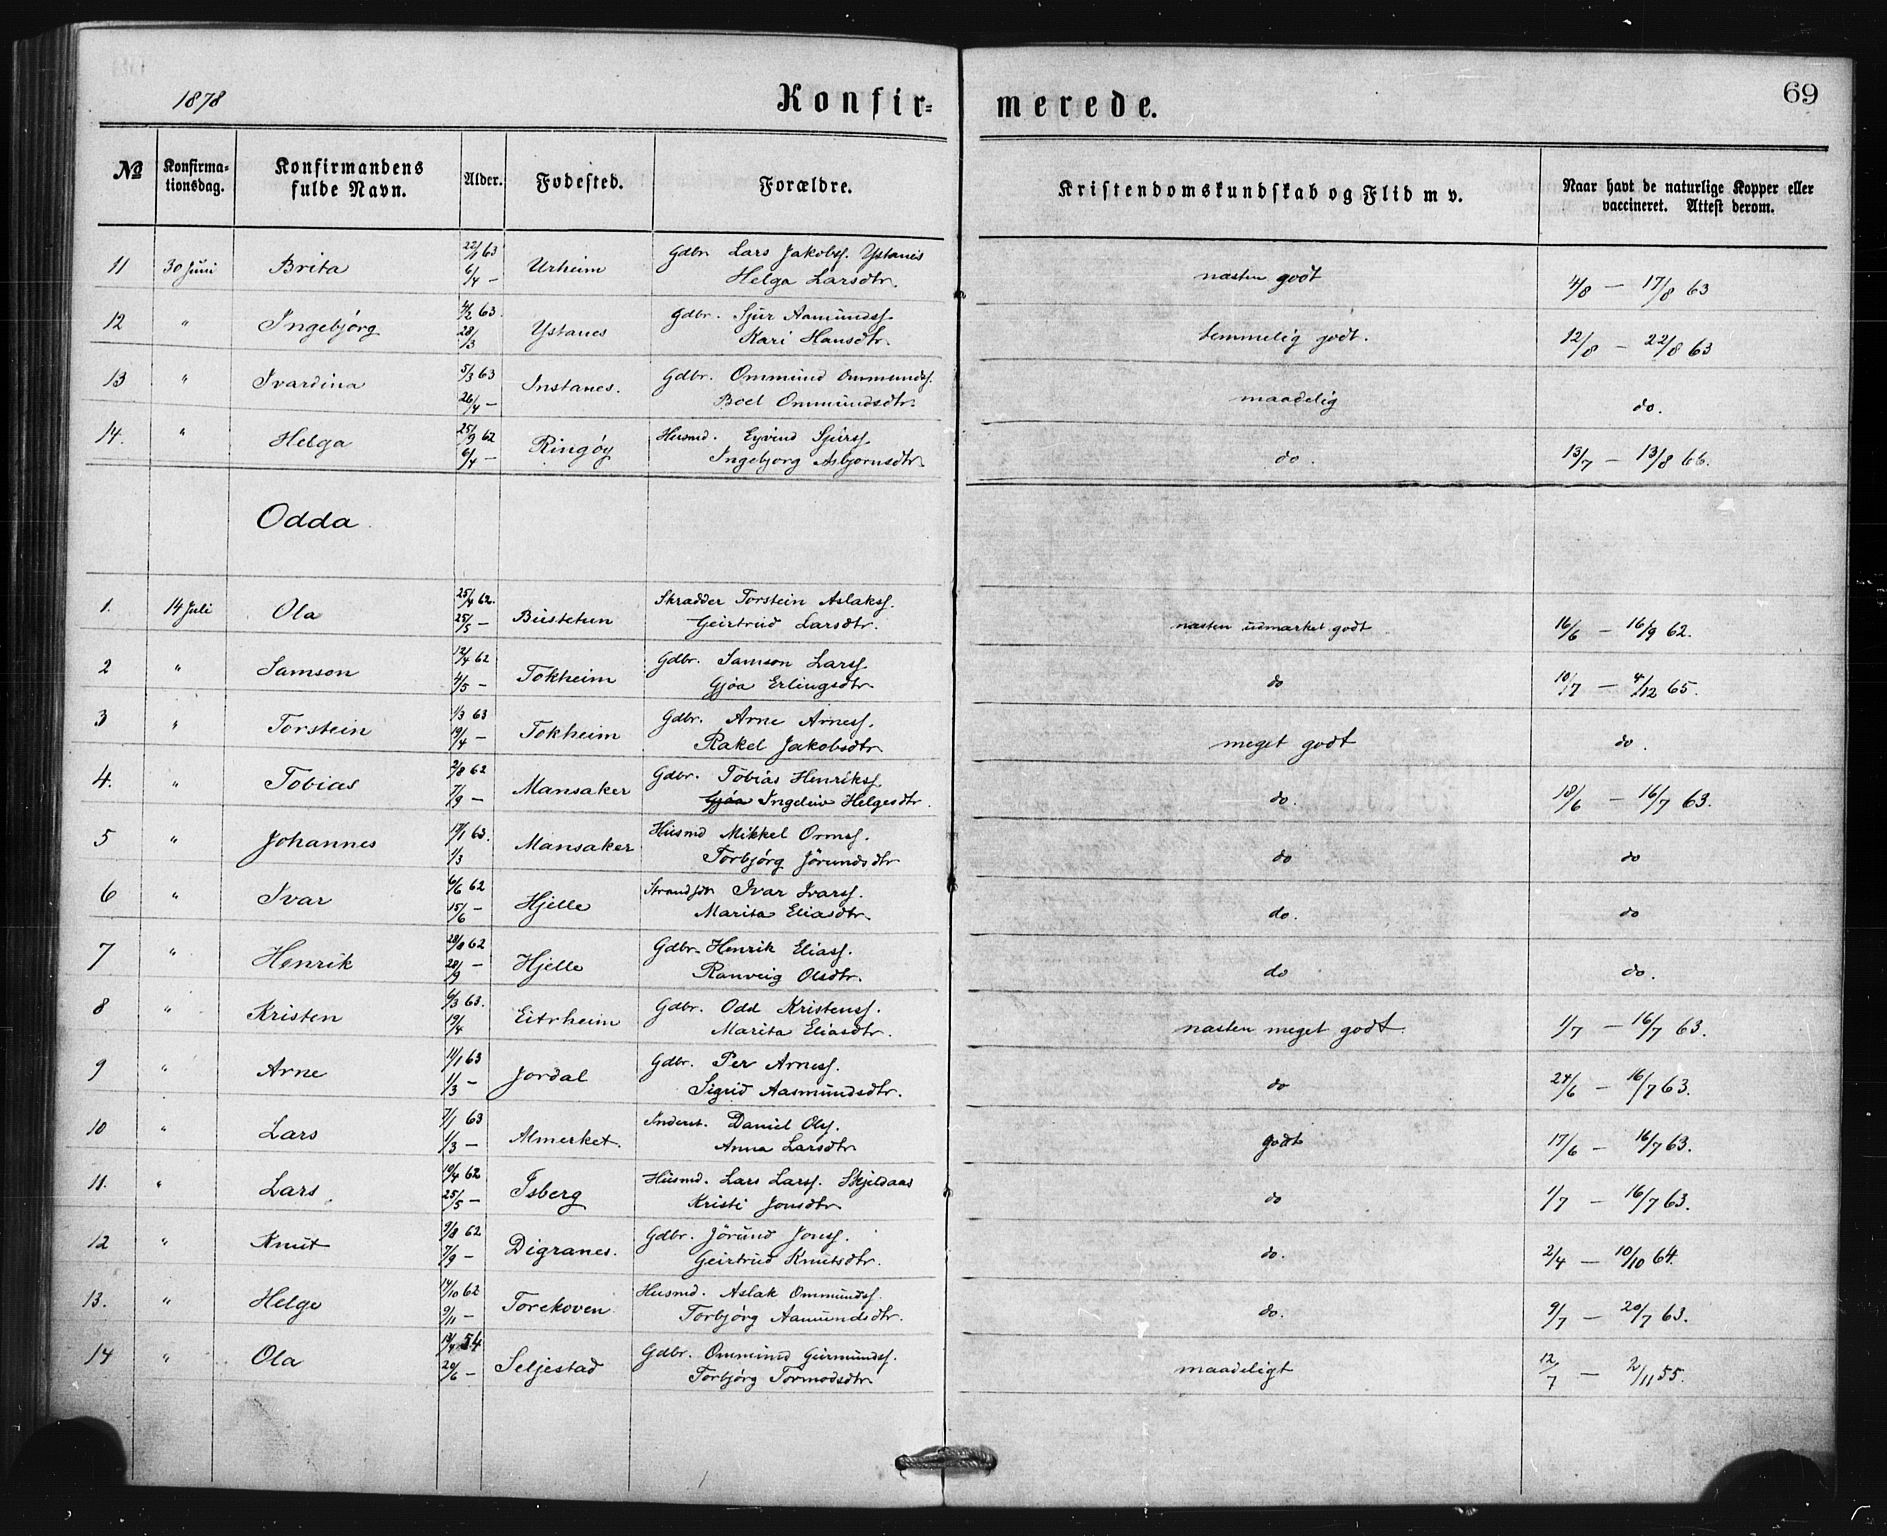 1878 Konfir= merede. 69
№ Konfirma- Konfirmandens Alder. Fodested. Forældre. Kristendomskundskab og Flid m v. Naar havt de naturlige Kopper eller
tionsdag. fulde Navn. vaccineret. Attest derom.
11 30 Juni Brita 22/1 63 Urheim Gdbr Lars Jakobsf. Ystanes næsten godt 4/8 — 17/8 63
6/4 — Helga Larsdtr.
12 " Ingebjörg 4/2 63. Ystanes Gdbr. Sjur Aamundsf. temmelig godt. 12/8 — 22/8 63
28/3 Kari Hansdtr.
13 " Ivardina 5/3 63 Instanes. Gdbr. Ommund Ommundsf. maadelig do.
26/4 — Boel Ommundsdtr.
14. " Helga 25/9 62 Ringöy Husmd. Eyvind Sjursf. do. 13/7 — 13/8 66.
6/4 — Ingebjorg Asbjornsdtr.
Odda
1. 14 Juli Ola 25/4 62. Bustetun Skrædder Torstein Aslaksf. næsten udmærket godt 16/6 — 16/9 62.
25/5 — Geirtrud Larsdtr.
2 " Samson 12/4 62 Tokheim Gdbr. Samson Larsf. do 10/7 — 4/12 65.
4/5 — Gjöa Erlingsdtr.
3 " Torstein 1/3 63 Tokheim Gdbr. Arne Arnesf. meget godt do.
19/4 — Rakel Jakobsdtr
4. " Tobias 2/8 62 Mansaker Gdbr. Tobias Henriksf. do. 18/6 — 16/7 63.
7/9 — Gjöa Ingeliv Helgesdtr.
5 " Johannes 17/1 63. Mansaker Husmd Mikkel Ormsf. do do
1/3 Torbjörg Jörundsdtr
6 " Ivar 6/6 62 Hjelle Strandsdr Ivar Ivarsf. do. do
15/6 — Marita Eliasdtr.
7 " Henrik 28/8 62 Hjelle Gdbr. Henrik Eliasf. do do.
28/9 — Ranveig Olsdtr.
8 " Kristen 6/3 63. Eitrheim Gdbr. Odd Kristensf. næsten meget godt. 1/7 — 16/7 63.
19/4 Marita Eliasdtr.
9 " Arne 11/1 63 Jordal Gdbr. Per Arnesf. do 24/6 — 16/7 63.
1/3 — Sigrid Aasmundsdtr.
10 " Lars 7/1 63 Almerket. Inderst. Daniel Olsf. godt 17/6 — 16/7 63.
1/3 — Anna Larsdtr
11. " Lars. 10/4 62 Isberg Husmd. Lars Larsf. Skjeldaas do 1/7 — 16/7 63.
25/5 — Kristi Jonsdtr
12 " Knut 9/8 62 Digranes. Gdbr. Jörund Jonsf. do. 2/4 — 10/10 64.
7/9 — Geirtrud Knutsdtr.
13. " Helge 14/10 62 Torekoven Husmd. Aslak Ommundsf. do. 9/7 — 20/7 63.
9/11 — Torbjörg Aamundsdtr.
14 " Ola 13/4 54 Seljestad Gdbr. Ommund Geirmundsf. maadeligt 12/7 — 2/11 55.
20/6 — Torbjörg Tormodsdtr